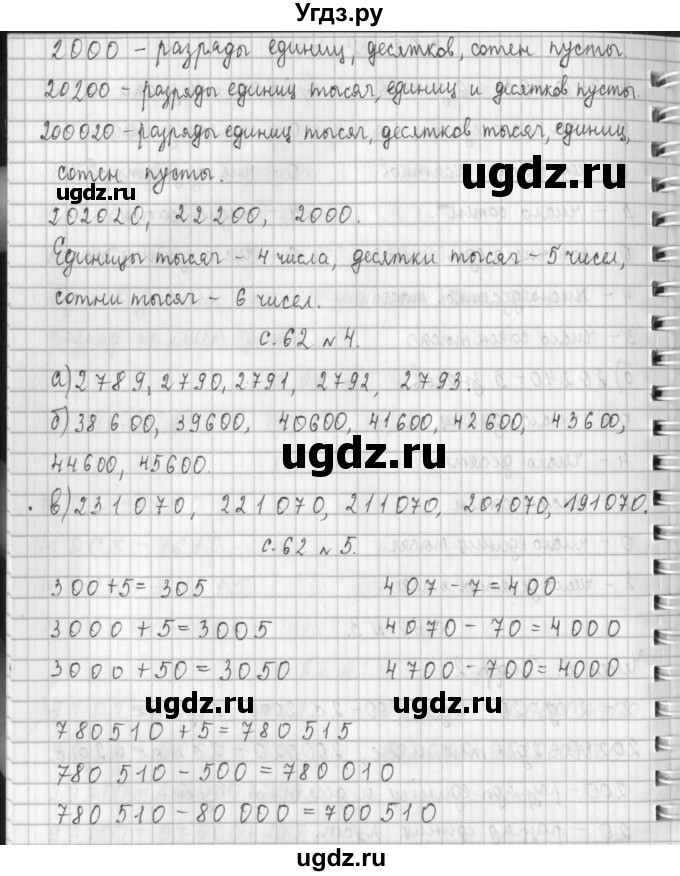 Угдз.ру
2000 – разряды единиц, десятков, сотен пусты.
20200 – разряды единиц тысяч, единиц и десятков пусты.
200020 – разряды единиц тысяч, десятков тысяч, единиц,
сотен пусты.
ugdz.ru
ugdz.ru
202020, 22200, 2000.
Единицы тысяч – 4 числа, десятки тысяч – 5 чисел,
сотни тысяч – 6 чисел.
с. 62 № 4.
а) 2789, 2790, 2791, 2792, 2793.
б) 38 600, 39600, 40600, 41600, 42600, 43600,
ugdz.ru
44600, 45600.
ugdz.ru
в) 231070, 221070, 211070, 201070, 191070.
с. 62 № 5.
300 + 5 = 305 407 – 7 = 400
3000 + 5 = 3005 4070 – 70 = 4000
3000 + 50 = 3050 4700 – 700 = 4000
ugdz.ru
ugdz.ru
780510 + 5 = 780515
780 510 – 500 = 780010
780 510 – 80 000 = 700510
ugdz.ru
ugdz.ru